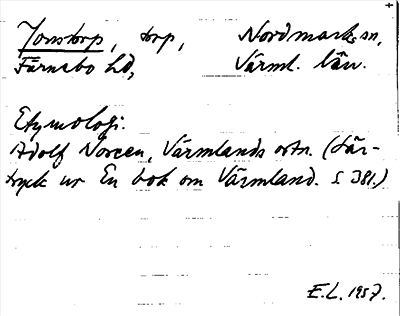 Jonstorp, torp, Nordmarks sn,
Färnebo hd, Värml. län.
Etymologi.
Adolf Noreen, Värmlands ortn. (Sär-
tryck ur En bok om Värmland. S. 381.)
E.L. 1957.